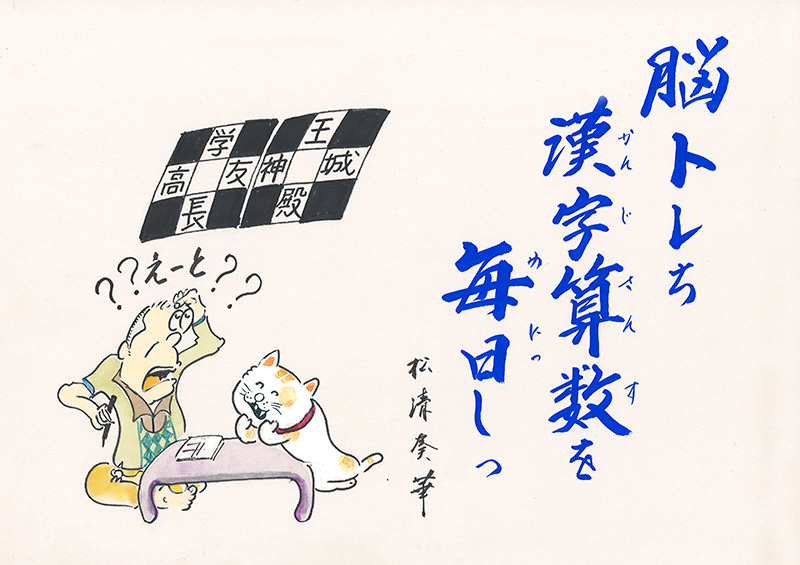 脳トレち
漢字算数を
かんじさんす
毎日しっ
めにっ
学
高 友
長
王
神 城
殿
??えーと??
松清奏華